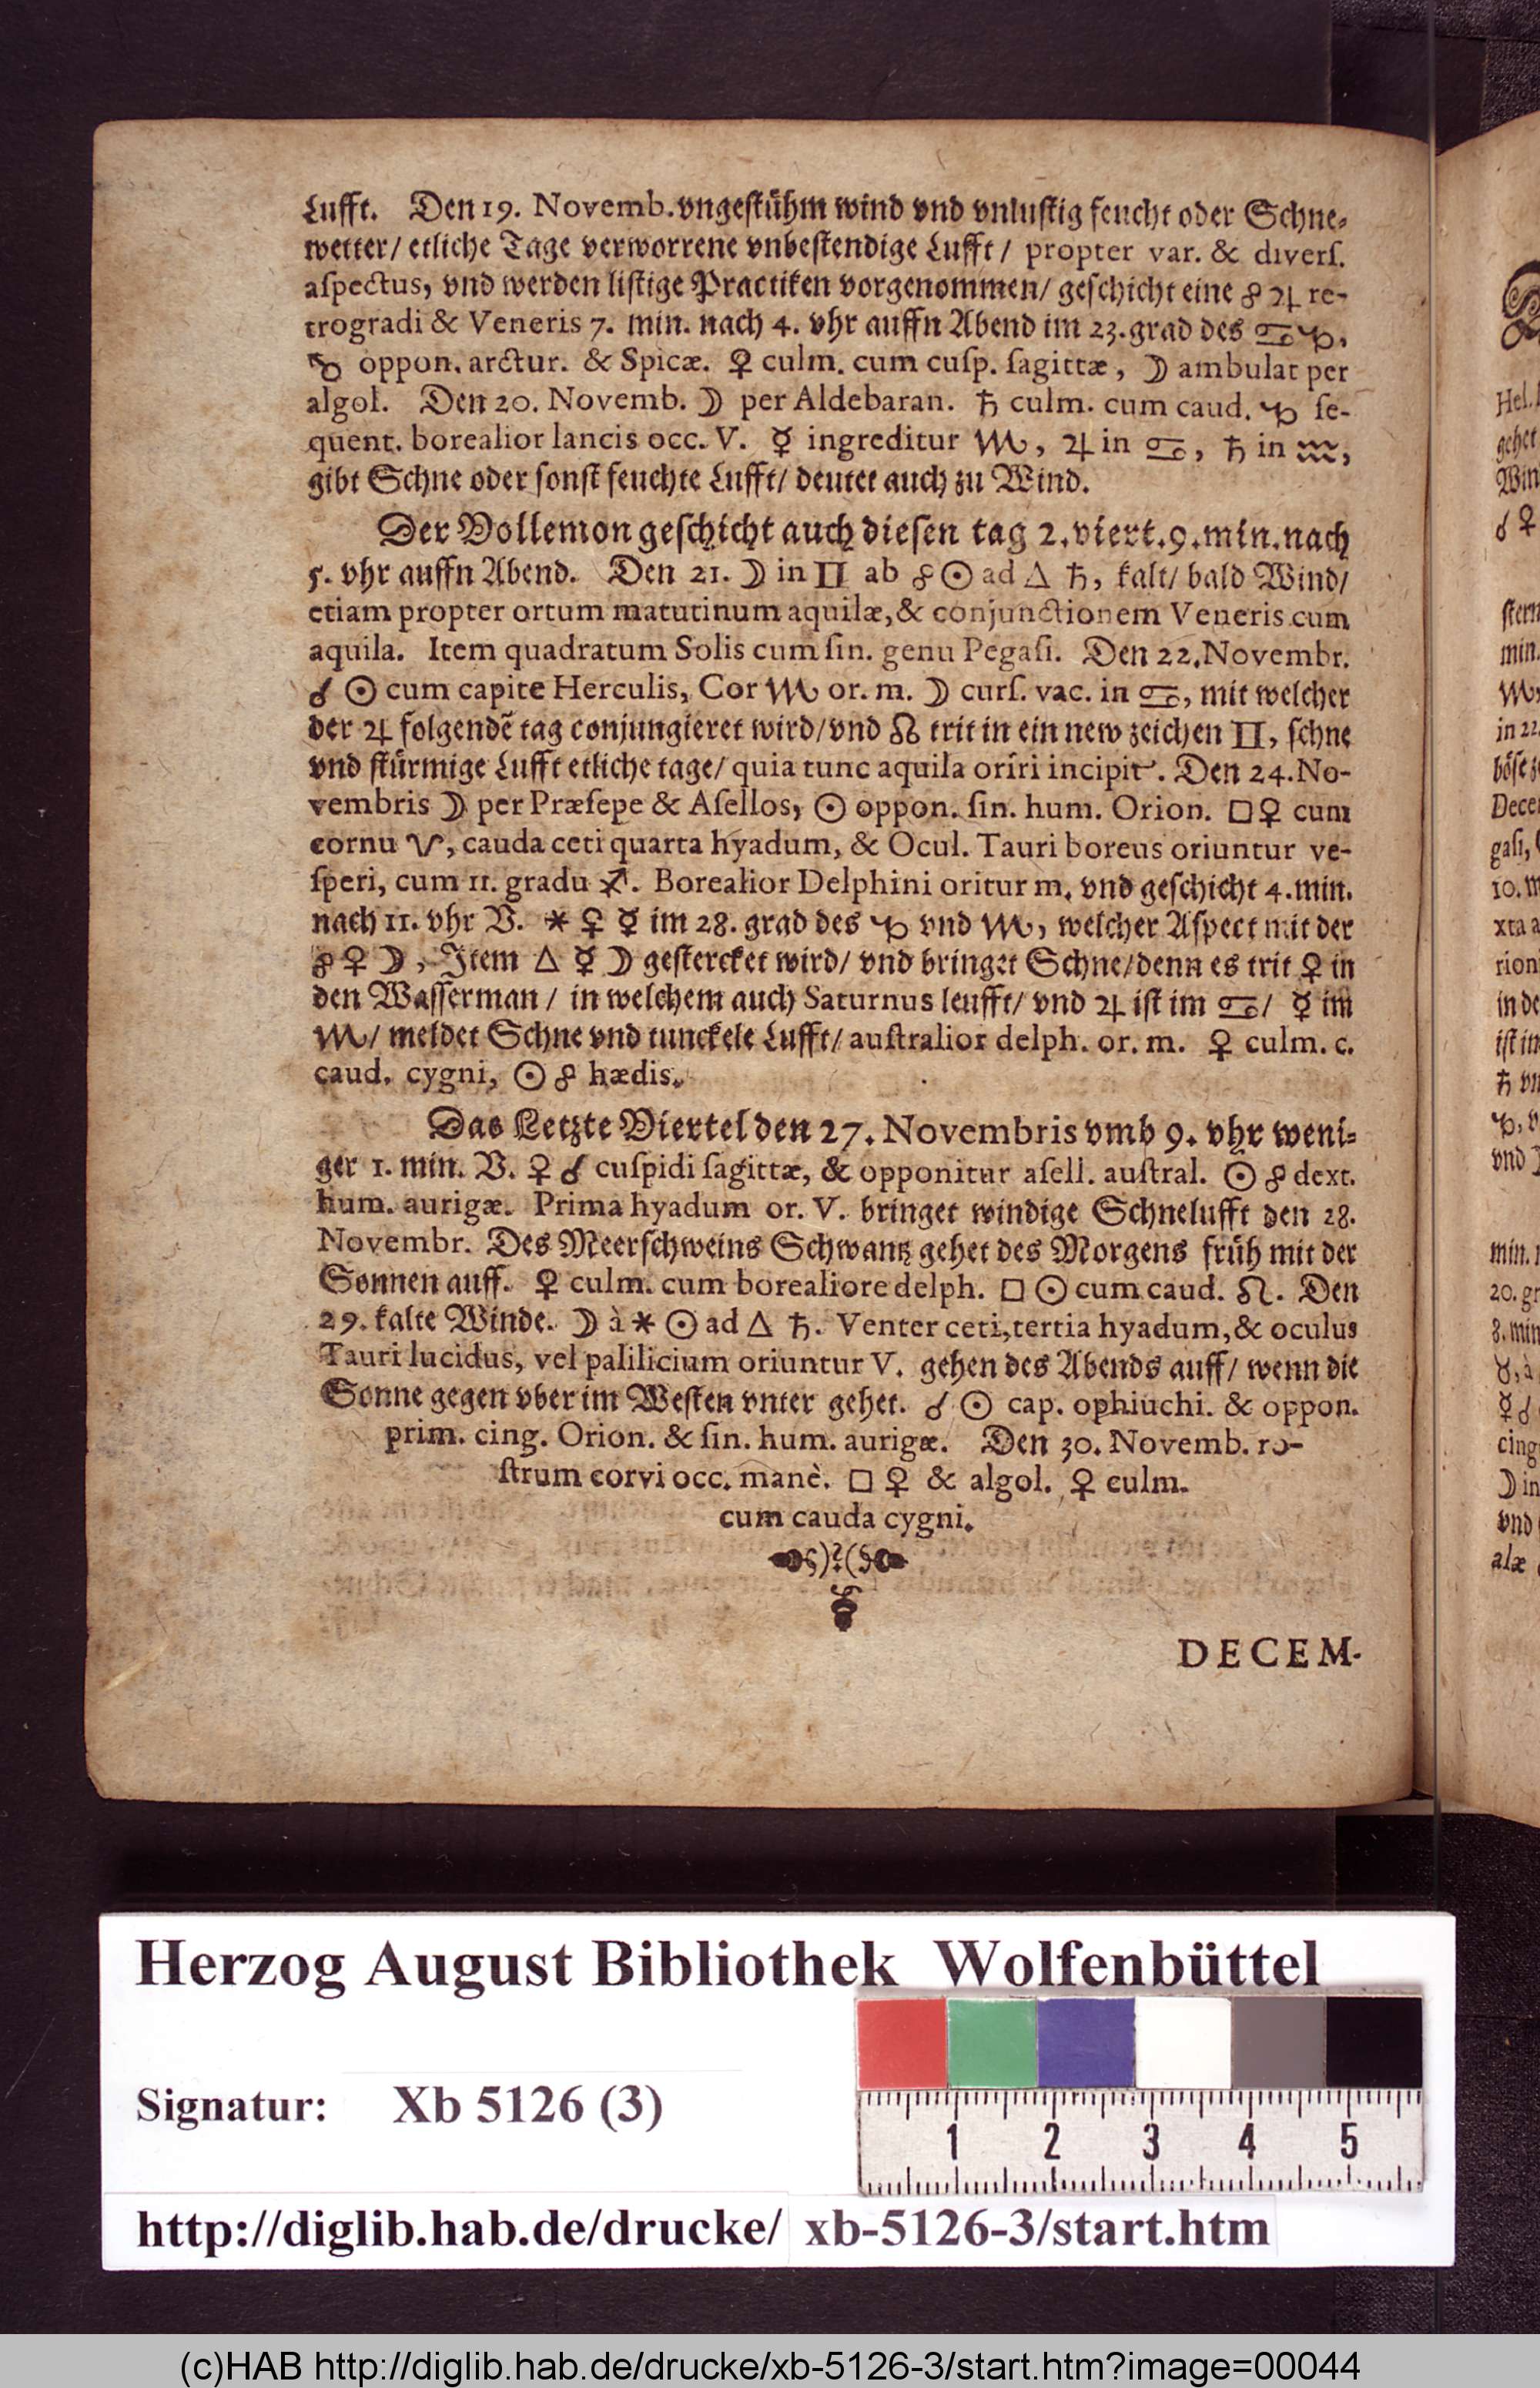 Lufft. Den 19. Novemb. vngestühm wind vnd vnlustig feucht oder Schne-
wetter/ etliche Tage verworrene vnbestendige Lufft/ propter var. & diverſ.
aſpectus, vnd werden listige Practiken vorgenommen/ geſchicht eine ☍ ♃ re-
trogradi & Veneris 7. min. nach 4. vhr auffn Abend im 23. grad des ♋ ♑,
♉ oppon. arctur. & Spicæ. ♀ culm. cum cuſp. ſagittæ, ☽ ambulat per
algol. Den 20. Novemb. ☽ per Aldebaran. ♄ culm. cum caud. ♑ ſe-
quent. borealior lancis occ. V. ☿ ingreditur ♏, ♃ in ♋, ♄ in ♒,
gibt Schne oder ſonst feuchte Lufft/ deutet auch zu Wind.
Der Vollemon geſchicht auch dieſen tag 2. viert. 9. min. nach
5. vhr auffn Abend. Den 21. ☽ in ♊ ab ☍ ☉ ad △ ♄, kalt/ bald Wind/
etiam propter ortum matutinum aquilæ, & conjunctionem Veneris cum
aquila. Item quadratum Solis cum ſin. genu Pegaſi. Den 22. Novembr.
☌ ☉ cum capite Herculis, Cor ♏ or. m. ☽ curſ. vac. in ♋, mit welcher
der ♃ folgendẽ tag conjungieret wird/ vnd ☊ trit in ein new zeichen ♊, ſchne
vnd stürmige Lufft etliche tage/ quia tunc aquila oriri incipit. Den 24. No-
vembris ☽ per Præſepe & Aſellos, ☉ oppon. ſin. hum. Orion. □ ♀ cum
cornu ♈, cauda ceti quarta hyadum, & Ocul. Tauri boreus oriuntur ve-
ſperi, cum 11. gradu ♐. Borealior Delphini oritur m. vnd geſchicht 4. min.
nach 11. vhr V. ⚹ ♀ ☿ im 28. grad des ♑ vnd ♏, welcher Aſpect mit der
☍ ♀ ☽, Item △ ☿ ☽ gestercket wird/ vnd bringet Schne/ denn es trit ♀ in
den Waſſerman/ in welchem auch Saturnus leufft/ vnd ♃ ist im ♋/ ☿ im
♏/ meldet Schne vnd tunckele Lufft/ auſtralior delph. or. m. ♀ culm. c.
caud. cygni, ☉ ☍ hædis.
Das Letzte Viertel den 27. Novembris vmb 9. vhr weni-
ger 1. min. V. ♀ ☌ cuſpidi ſagittæ, & opponitur aſell. auſtral. ☉ ☍ dext.
hum. aurigæ. Prima hyadum or. V. bringet windige Schnelufft den 28.
Novembr. Des Meerſchweins Schwantz gehet des Morgens früh mit der
Sonnen auff. ♀ culm. cum borealiore delph. □ ☉ cum caud. ♌. Den
29. kalte Winde. ☽ à ⚹ ☉ ad △ ♄. Venter ceti, tertia hyadum, & oculus
Tauri lucidus, vel palilicium oriuntur V. gehen des Abends auff/ wenn die
Sonne gegen vber im Westen vnter gehet. ☌ ☉ cap. ophiuchi. & oppon.
prim. cing. Orion. & ſin. hum. aurigæ. Den 30. Novemb. ro-
ſtrum corvi occ. manè. □ ♀ & algol. ♀ culm.
cum cauda cygni.
DECEM-
Herzog August Bibliothek Wolfenbüttel
Signatur: Xb 5126 (3)
1 2 3 4 5
http://diglib.hab.de/drucke/ xb-5126-3/start.htm
(c)HAB http://diglib.hab.de/drucke/xb-5126-3/start.htm?image=00044